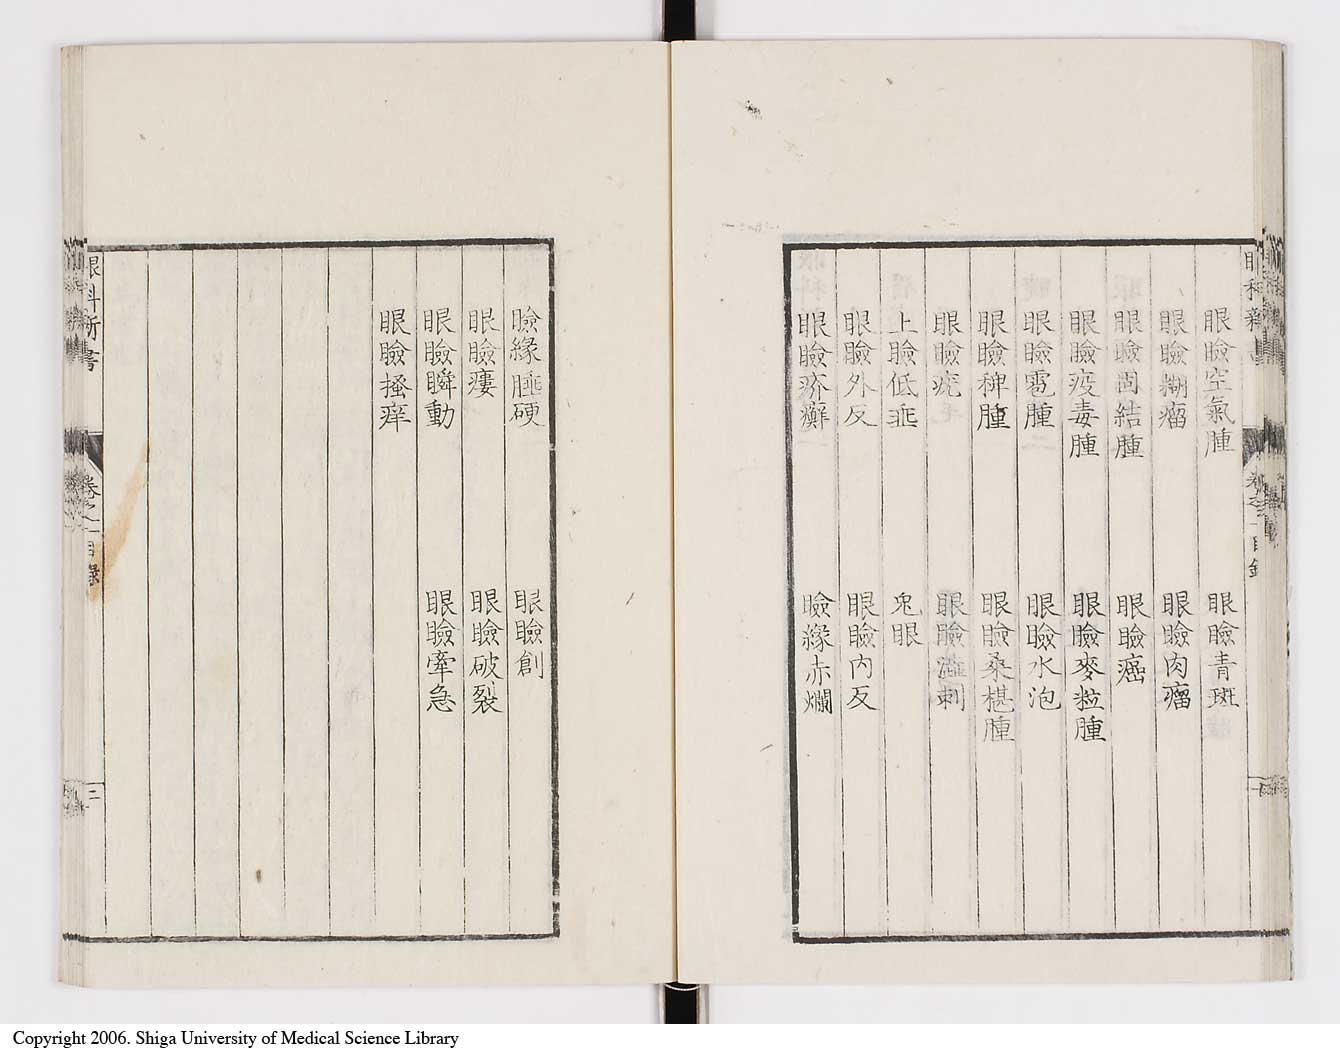 眼瞼空氣腫 眼瞼青斑
眼瞼糊瘤 眼瞼肉瘤
眼瞼固結腫 眼瞼癌
眼瞼疫毒腫 眼瞼麥粒腫
眼瞼雹腫 眼瞼水泡
眼瞼稗腫 眼瞼桑椹腫
眼瞼疣 眼瞼澁刺
上瞼低垂 兎眼
眼瞼外反 眼瞼内反
眼瞼疥癬 瞼緣赤爛
瞼緣腄硬 眼瞼創
眼瞼瘻 眼瞼破裂
眼瞼瞬動 眼瞼牽急
眼瞼搔痒
眼科新書 卷之一 目錄 三
Copyright 2006. Shiga University of Medical Science Library